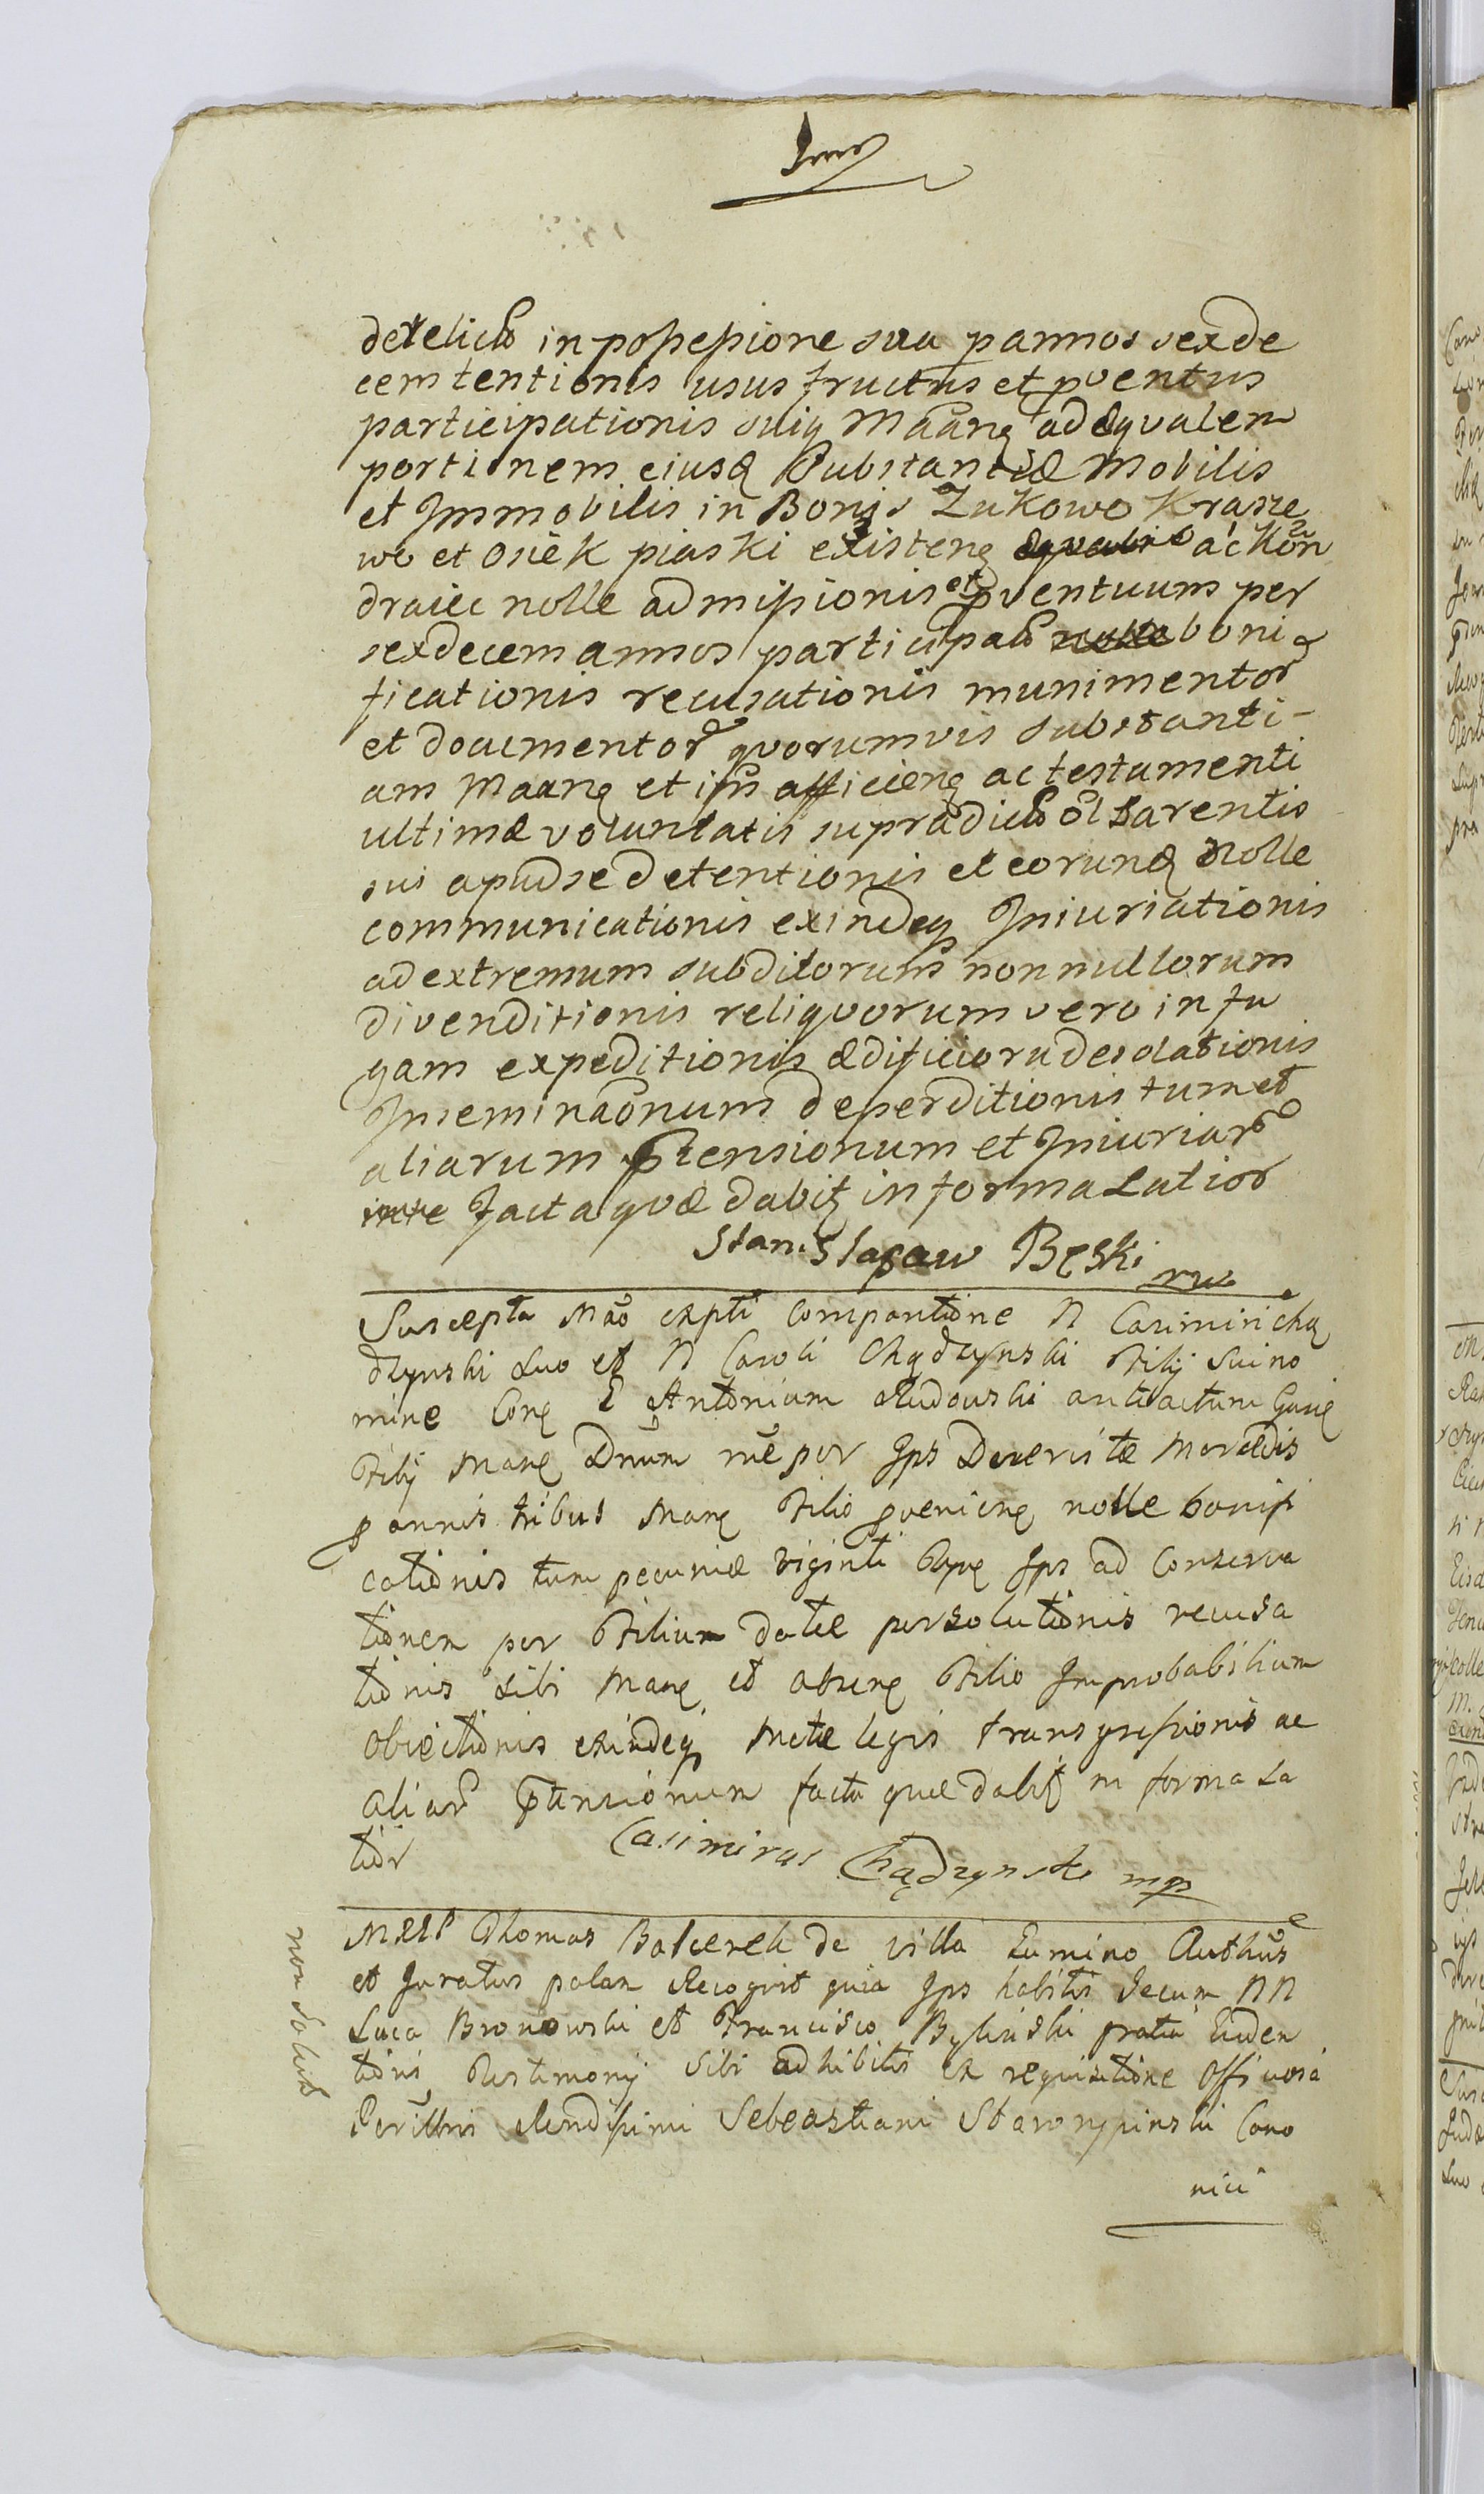 derelicto in possessione sua p annos sexde
cem tentionis usus fructus et pventus
participationis suiq Maanq adæqualem
portionem eiusd Substantiæ Mobilis
et Immobilis in Bonis Zukowo Krasze
wo et Osiek piaski existenq ac Kon
draiec nolle admissionis et pventuum per
sexdecem annos participato boni
ficationis recusationis munimentor
et documentor quorumvis substanti-
am Maanq et ipsu afficienq ac testamenti
ultimæ voluntatis supradicto ol Parentis
sui apud se detentionis et eorund Nolle
communicationis exindeq Iniuriationis
ad extremum subditorum nonnullorum
divenditionis reliquorum vero in fu
gam expeditionis ædificioru desolationis
Inseminaonum deperditionis tum et
aliarum ptensionum et Iniuriar
facta quæ dabit in forma Latior
Stanislaw Bęski
Suscepta Mao expti Compantione N Casimiri Chą
dzynski suo et N Caroli Chądzynski Filij Sui no
mine Conq Antonium Rudowski
Filij Manq Dnum rne per Ips Deveristæ Mercedis
p annis tribus Manq Filio pvenienq nolle bonifi
cationis tum pecuniæ viginti Ips ad Conserva
tionem per Filium datæ persolutionis recusa
tionis sibi Manq et absenq Filio Improbabilium
Obiectionis exindeq Metæ legis transgressionis ac
Aliar ptensionum facta quæ dabit in forma La
tior Casimirus Chądzynski mp
Thomas Balcerek de villa Lumino Authus
et Juratus palam Recogvit quia Ips habitis secum NN
Luca Bronowski et Francisco Bylinski gratia Euiden
tioris Testimonij Sibi adhibitis ex requisitione Officiosa
Perillris Rendissimi Sebeastiani Starorypinski Cano
nici
non Solut